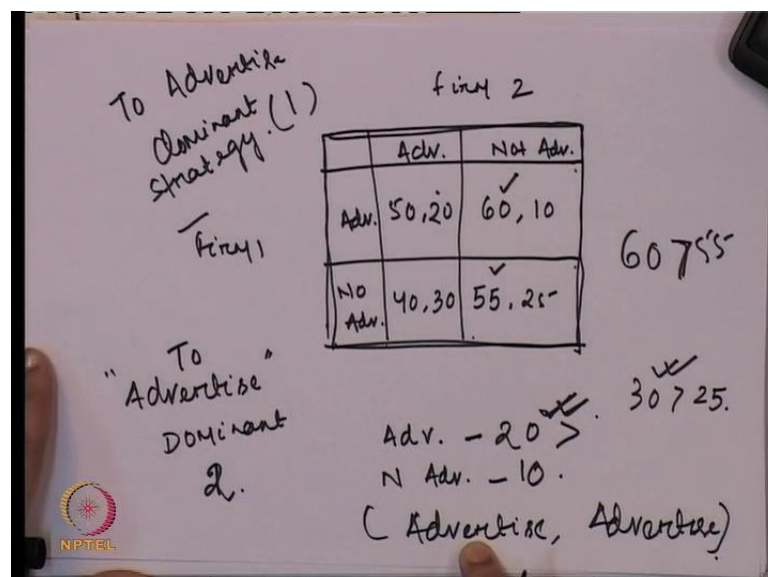 To Advertise
dominant (1)
strategy.
Firm 2
Adv. Not Adv.
Firm 1
Adv. 50,20 60,10
No Adv. 40,30 55,25
60 > 55
"To
Advertise"
DOMINANT
2.
30 > 25.
Adv. - 20 >
N Adv. - 10.
(Advertise, Advertise)
NPTEL